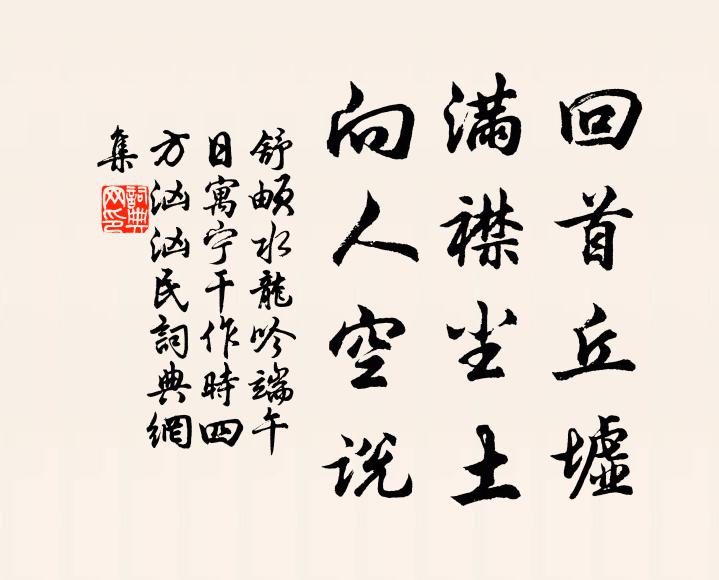 回首丘墟
满襟尘土
向人空说
舒頔水龍吟端午
日寓宁干作時四
方汹汹民詞典網
集
詞典网印